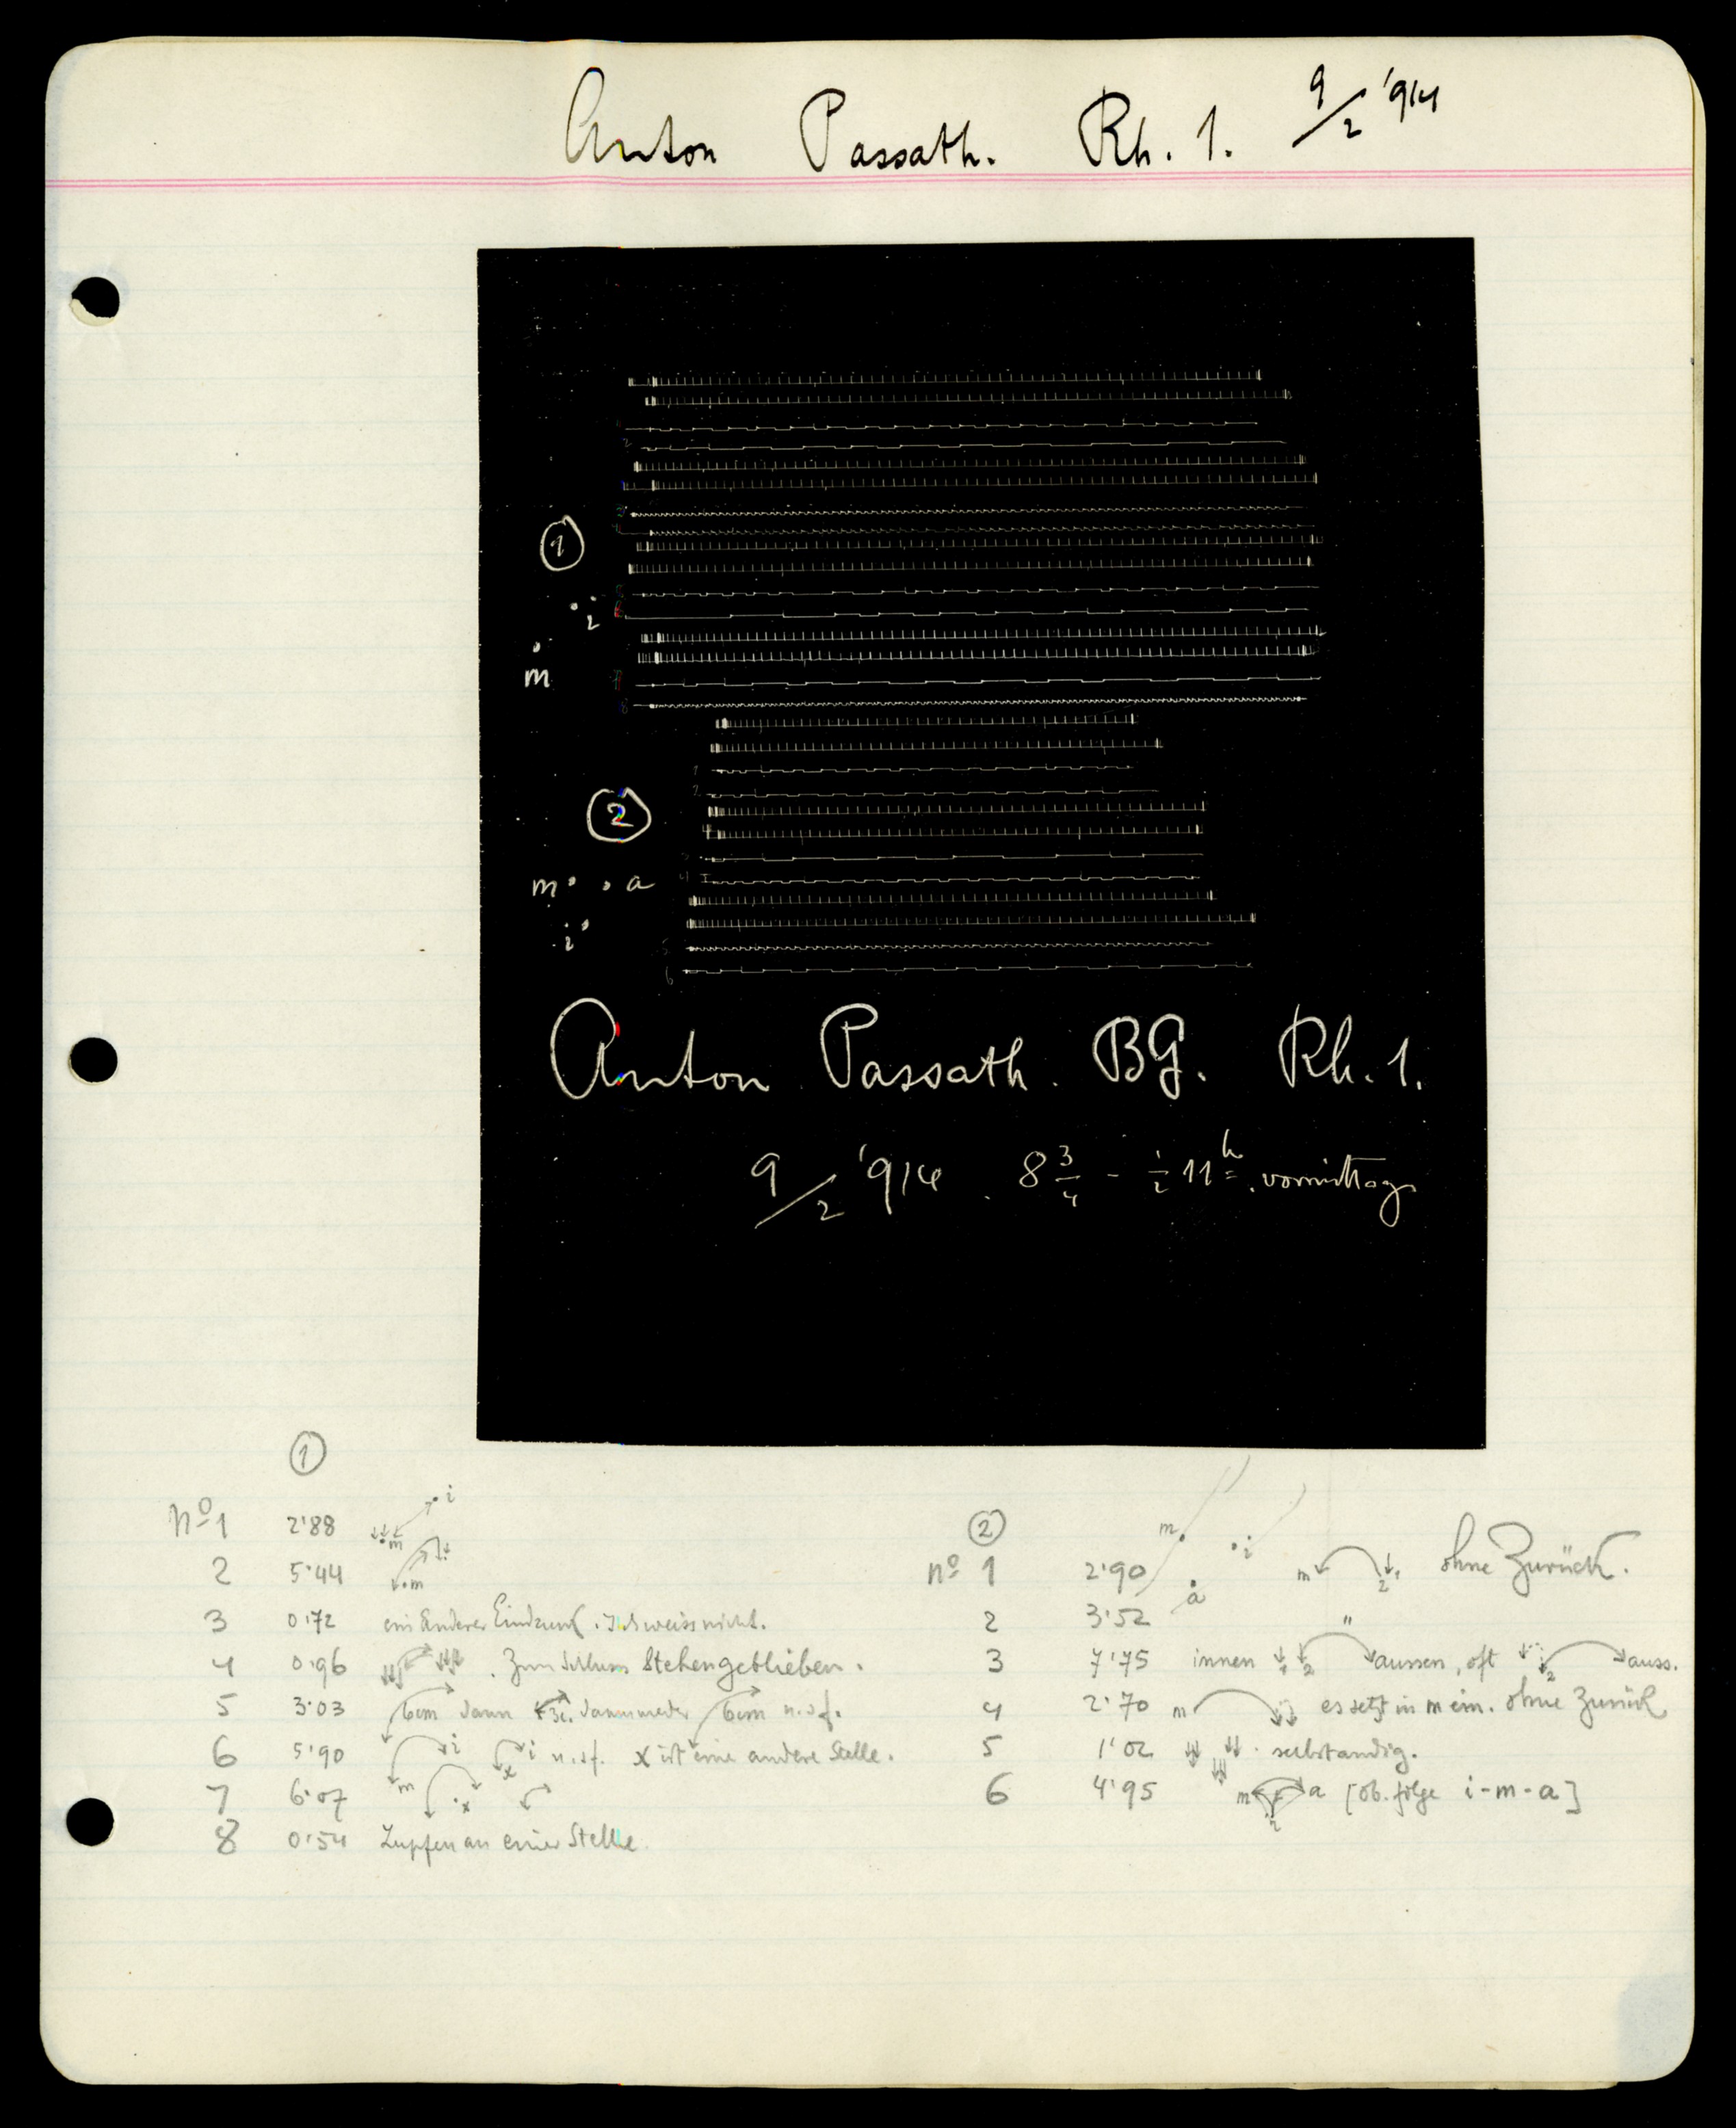 Anton Passath. Rh. 1. 9/2 '914
1
2
1
i
2
m
7
8
1
2
2
m a
i
5
6
Anton Passath. BG. Rh. 1.
9/2 '914. 8 3/4 - 1/2 11 h. vormittags
1
No 1 2'88 m i
2 5'44 m
3 0'72 ein anderer Eindruck. Ich weiss nicht.
4 0'96 . Zum Schluss Stehengeblieben.
5 3'03 6cm dann 3c. dann wieder 6cm u.s.f.
6 5'90 m i x i u.s.f. x ist eine andere Stelle.
7 6'07 x
8 0'54 Zupfen an einer Stelle.
2
m i a
no 1 2'90 m 2 1 ohne Zurück.
2 3'52 "
3 7'75 innen 1 2 aussen, oft 1 2 auss.
4 2'70 m es setzt in m ein. ohne Zurück
5 1'02 selbständig.
6 4'95 m i a [ob. folge i-m-a]